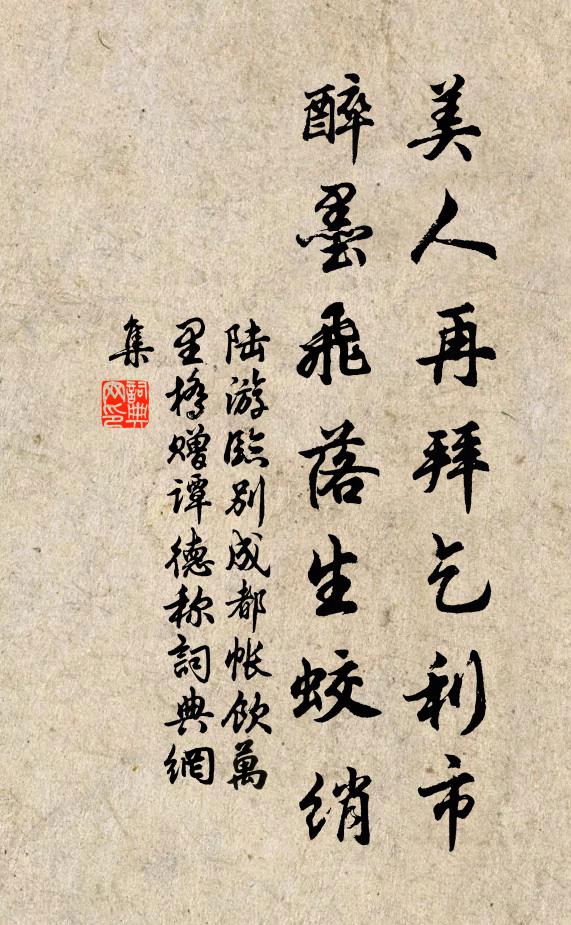 美人再拜乞利市
醉墨飛落生蛟綃
陆游臨別成都帐飲萬
里橋赠谭德称詞典網
集
詞典網印